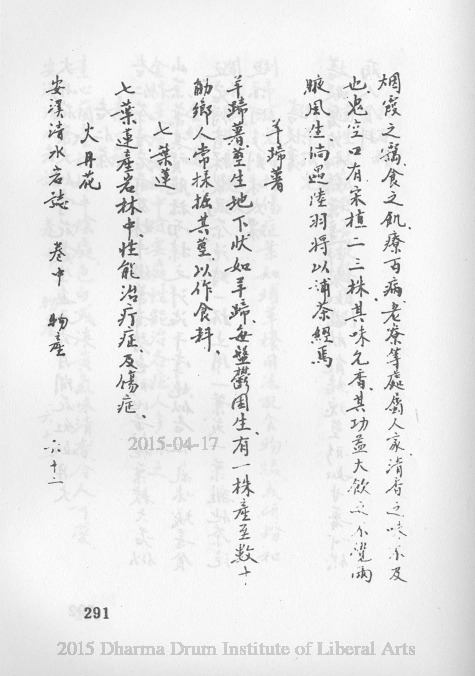 烟霞之靄食之飢療百病老寮等處屬人家清香之味不及
也鬼空口有宋植二三株其味尤香其功益大飲之不覺兩
腋風生倘遇陸羽將以補茶經焉
羊蹄薯
羊蹄薯莖生地下狀如羊蹄每盤鬱困生有一株產至數十
觔鄉人常採掘其莖以作食料
七葉蓮
七葉蓮產岩林中性能治疔症及傷症
火丹花
安溪清水岩誌 卷中 物產 六十二
2015-04-17
291
2015 Dharma Drum Institute of Liberal Arts